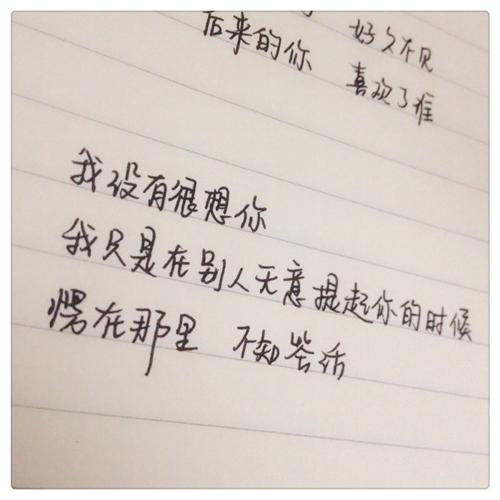 好久不见
后来的你 喜欢了谁
我没有很想你
我只是在别人无意提起你的时候
愣在那里 不知答话